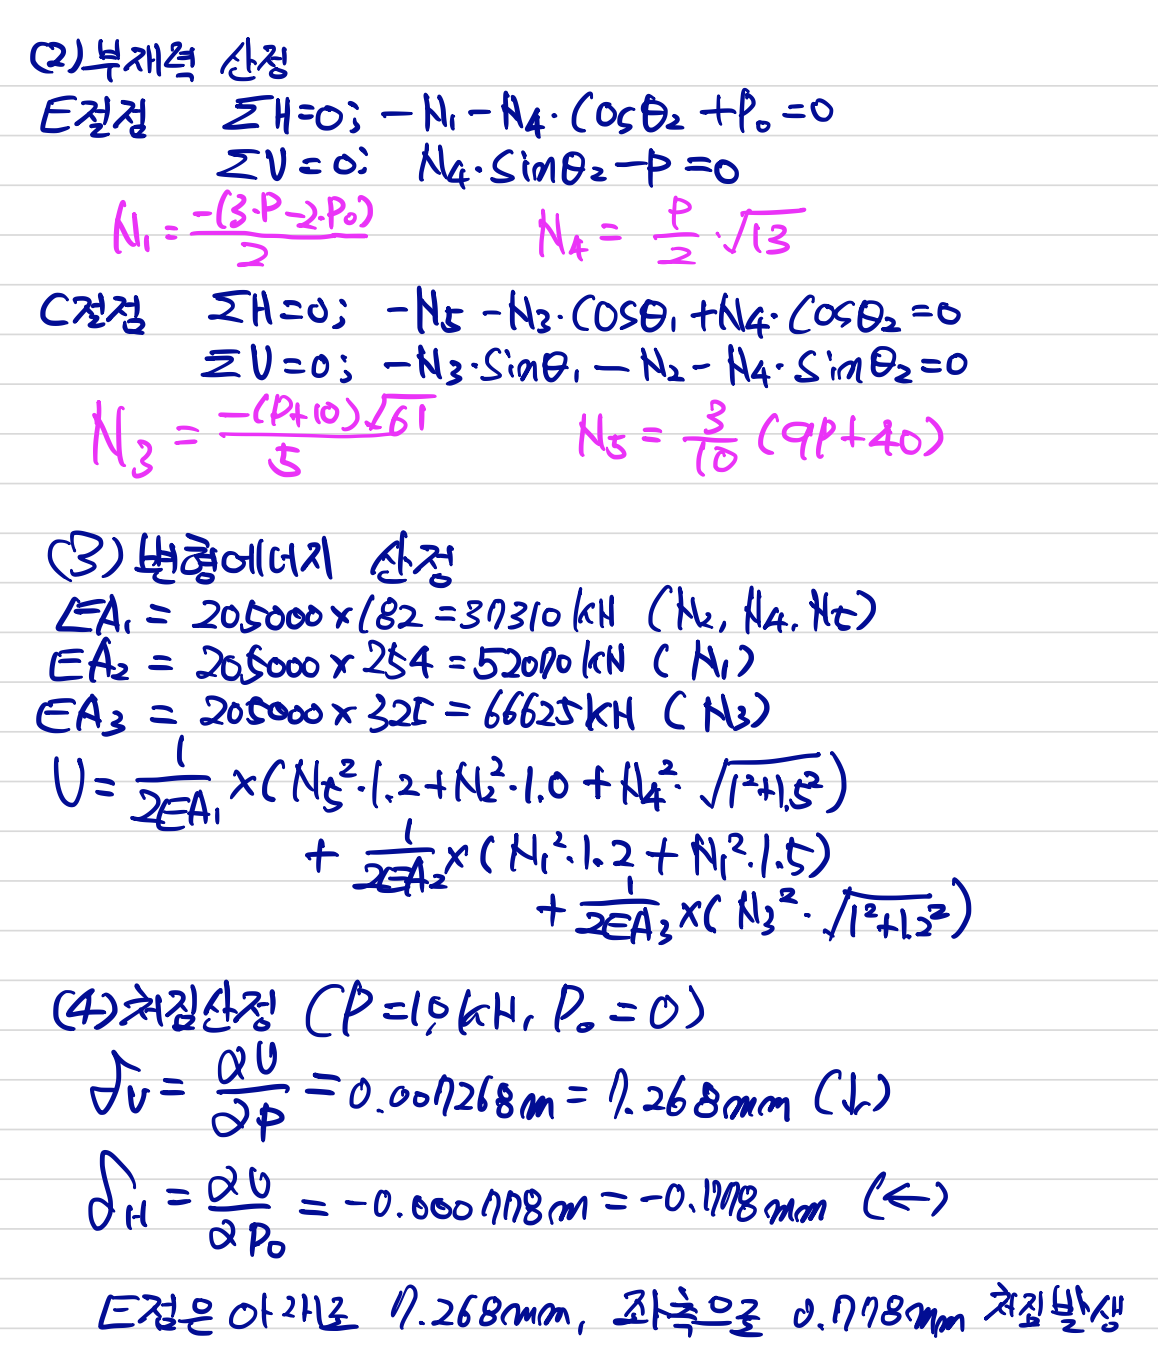 (2) 부재력 산정
E절점 ΣH=0; -N₁-N₄·cosθ₂+P₀=0
ΣV=0; N₄·sinθ₂-P=0
N₁=-(3·P-2·P₀)/2 N₄=P/2·√13
C절점 ΣH=0; -N₅-N₃·cosθ₁+N₄·cosθ₂=0
ΣV=0; -N₃·sinθ₁-N₂-N₄·sinθ₂=0
N₃=-(P+10)√61/5 N₅=3/10(9P+40)
(3) 변형에너지 산정
EA₁=205000×182=37310kN (N₂, N₄, N₅)
EA₂=205000×254=52070kN (N₁)
EA₃=205000×325=66625kN (N₃)
U=1/2EA₁×(N₅²·1.2+N₂²·1.0+N₄²·√1²+1.5²)
+1/2EA₂×(N₁²·1.2+N₁²·1.5)
+1/2EA₃×(N₃²·√1²+1.2²)
(4) 처짐산정 (P=10kN, P₀=0)
δᵥ=∂U/∂P=0.007268m=7.268mm (↓)
δH=∂U/∂P₀=-0.000778m=-0.778mm (←)
E점은 아래로 7.268mm, 좌측으로 0.778mm 처짐발생